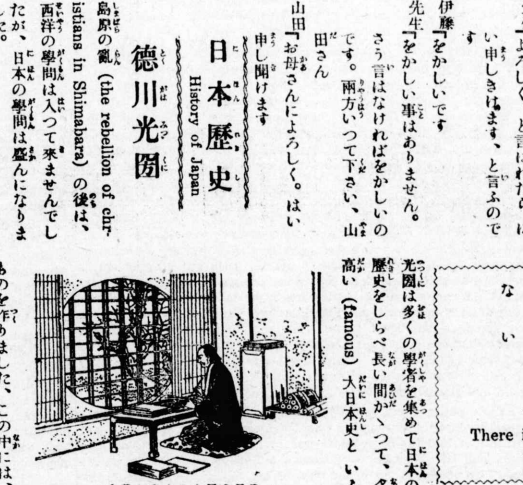 よろしく』と言はれたら
い申しきけます、と言ふので
す
伊藤『をかしいです
先生『をかしい事はありません。
さう言はなければをかしいの
です。兩方いつて下さい、山
田さん
山田『お母さんによろしく。はい
申し聞けます
日本歷史
History of Japan
德川光圀
島原の亂 (the rebellion of chr-
istians in Shimabara) の後は、
西洋の學問は入つて來ませんでし
たが、日本の學問は盛んになりま
した。
ない
There
光圀は多くの學者を集めて日本の
歷史をしらべ長い間かゝつて、名
高い (famous) 大日本史と い
ものを作りました、この中には